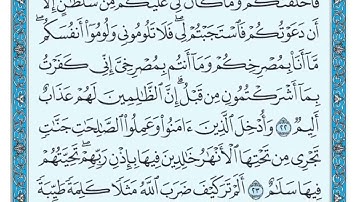 فَأَخْلَفْتُكُمْ وَمَا كَانَ لِىَ عَلَيْكُم مِّن سُلْطَٰنٍ إِلَّآ
أَن دَعَوْتُكُمْ فَٱسْتَجَبْتُمْ لِى ۖ فَلَا تَلُومُونِى وَلُومُوٓا۟ أَنفُسَكُم ۖ
مَّآ أَنَا۠ بِمُصْرِخِكُمْ وَمَآ أَنتُم بِمُصْرِخِىَّ ۖ إِنِّى كَفَرْتُ
بِمَآ أَشْرَكْتُمُونِ مِن قَبْلُ ۗ إِنَّ ٱلظَّٰلِمِينَ لَهُمْ عَذَابٌ
أَلِيمٌ ٢٢ وَأُدْخِلَ ٱلَّذِينَ ءَامَنُوا۟ وَعَمِلُوا۟ ٱلصَّٰلِحَٰتِ جَنَّٰتٍ
تَجْرِى مِن تَحْتِهَا ٱلْأَنْهَٰرُ خَٰلِدِينَ فِيهَا بِإِذْنِ رَبِّهِمْ ۖ تَحِيَّتُهُمْ
فِيهَا سَلَٰمٌ ٢٣ أَلَمْ تَرَ كَيْفَ ضَرَبَ ٱللَّهُ مَثَلًا كَلِمَةً طَيِّبَةً